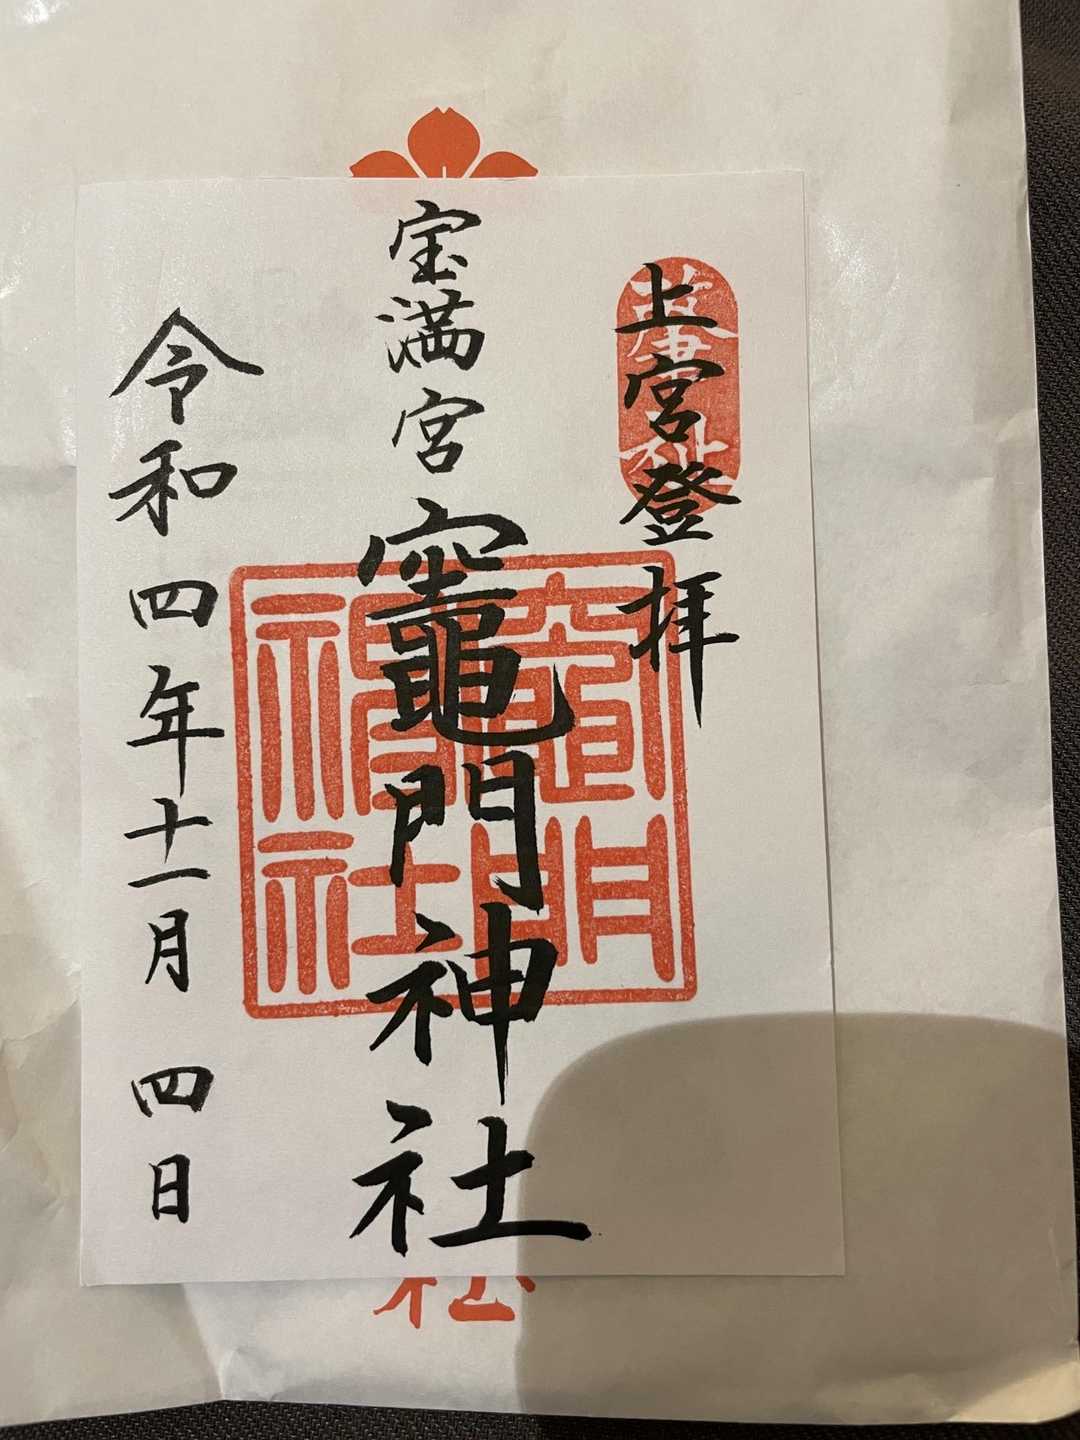 上宮登拝
宝満宮竈門神社
令和四年十一月四日
竈門神社